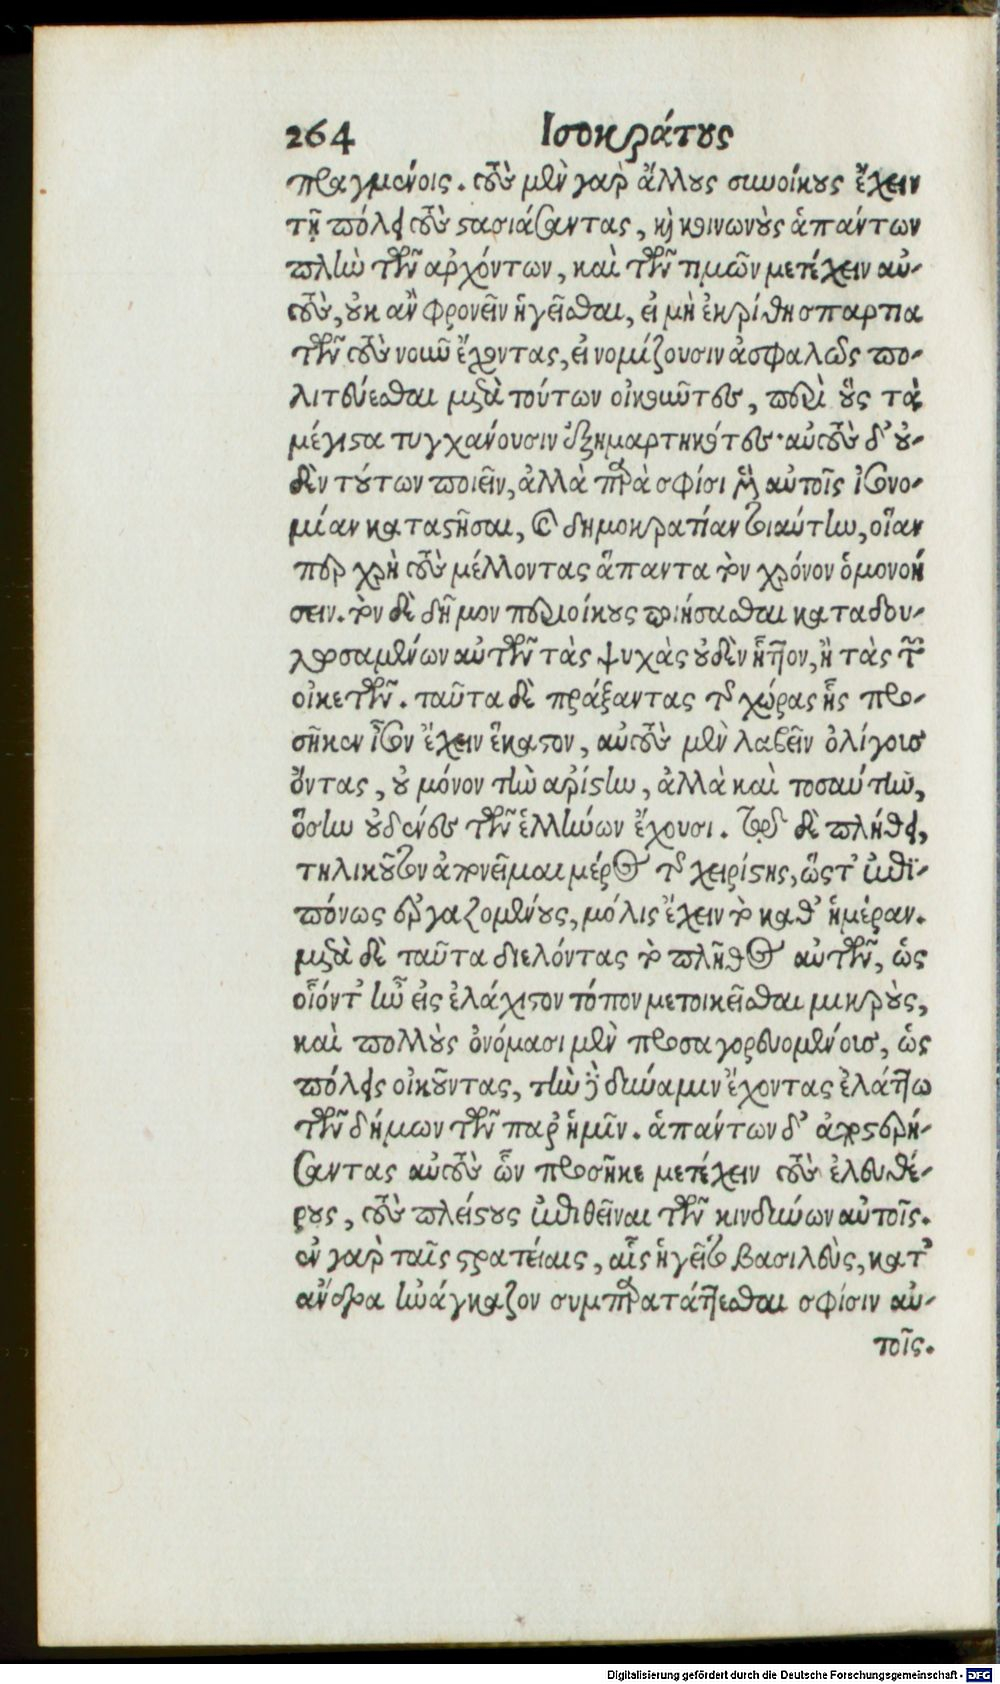 264 Ισοκράτους
πραγμένοις. τοὺς μὲν γὰρ ἄλλους συνοίκους ἔχειν
τῇ πόλει τοὺς στασιάσαντας, καὶ κοινωνοὺς ἁπάντων
πλὴν τῶν ἀρχόντων, καὶ τῶν τιμῶν μετέχειν αὐ-
τοὺς, οὐκ ἂν φρονεῖν ἡγεῖσθαι, εἰ μὴ ἐκρίθη σπαρτια
τῶν τοὺς νοῦν ἔχοντας, εἰ νομίζουσιν ἀσφαλῶς πο-
λιτεύεσθαι μετὰ τούτων οἰκοῦντες, περὶ οὓς τὰ
μέγιστα τυγχάνουσιν ἐξημαρτηκότες· αὐτοὺς δ' οὐ-
δὲν τούτων ποιεῖν, ἀλλὰ παρὰ σφίσι μὲν αὐτοῖς ἰσονο-
μίαν καταστῆσαι, καὶ δημοκρατίαν τοιαύτην, οἵαν
περ χρὴ τοὺς μέλλοντας ἅπαντα τὸν χρόνον ὁμονοή
σειν. τὸν δὲ δῆμον περιοίκους ποιήσασθαι καταδου-
λωσαμένων αὐτῶν τὰς ψυχὰς οὐδὲν ἧττον, ἢ τὰς τῶν
οἰκετῶν. ταῦτα δὲ πράξαντας τῆς χώρας ἧς προ-
σῆκεν ἴσον ἔχειν ἕκαστον, αὐτοὺς μὲν λαβεῖν ὀλίγοις
ὄντας, οὐ μόνον τὴν ἀρίστην, ἀλλὰ καὶ τοσαύτην,
ὅσην οὐδένες τῶν ἑλλήνων ἔχουσι. τῷ δὲ πλήθει,
τηλικοῦτον ἀπονεῖμαι μέρος τῆς χειρίστης, ὥστ' ἐπι-
πόνως ἐργαζομένους, μόλις ἔχειν τὸ καθ' ἡμέραν.
μετὰ δὲ ταῦτα διελόντας τὸ πλῆθος αὐτῶν, ὡς
οἷόντ' ἦν εἰς ἐλάχιστον τόπον μετοικεῖσθαι μικροὺς,
καὶ πολλοὺς ὀνόμασι μὲν προσαγορευομένοις, ὡς
πόλεις οἰκοῦντας, τὴν δὲ δύναμιν ἔχοντας ἐλάττω
τῶν δήμων τῶν παρ' ἡμῖν. ἁπάντων δ' ἀποστερή-
σαντας αὐτοὺς ὧν προσῆκε μετέχειν τοὺς ἐλευθέ-
ρους, τοὺς πλείστους ἐπιθεῖναι τῶν κινδύνων αὐτοῖς.
ἐν γὰρ ταῖς στρατείαις, αἷς ἡγεῖτο βασιλεὺς, κατ'
ἄνδρα ἠνάγκαζον συμπαρατάττεσθαι σφίσιν αὐ-
τοῖς.
Digitalisierung gefördert durch die Deutsche Forschungsgemeinschaft - DFG